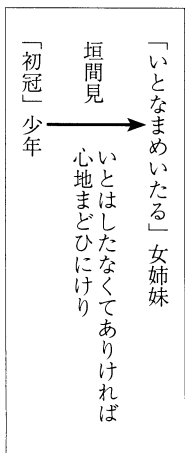 「いとなまめいたる」女姉妹
垣間見
いとはしたなくてありければ
心地まどひにけり
「初冠」少年